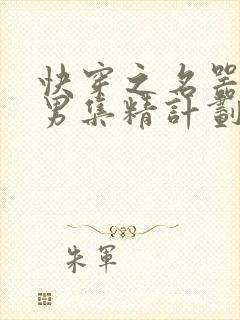 快穿之名器
男集精計劃
朱軍